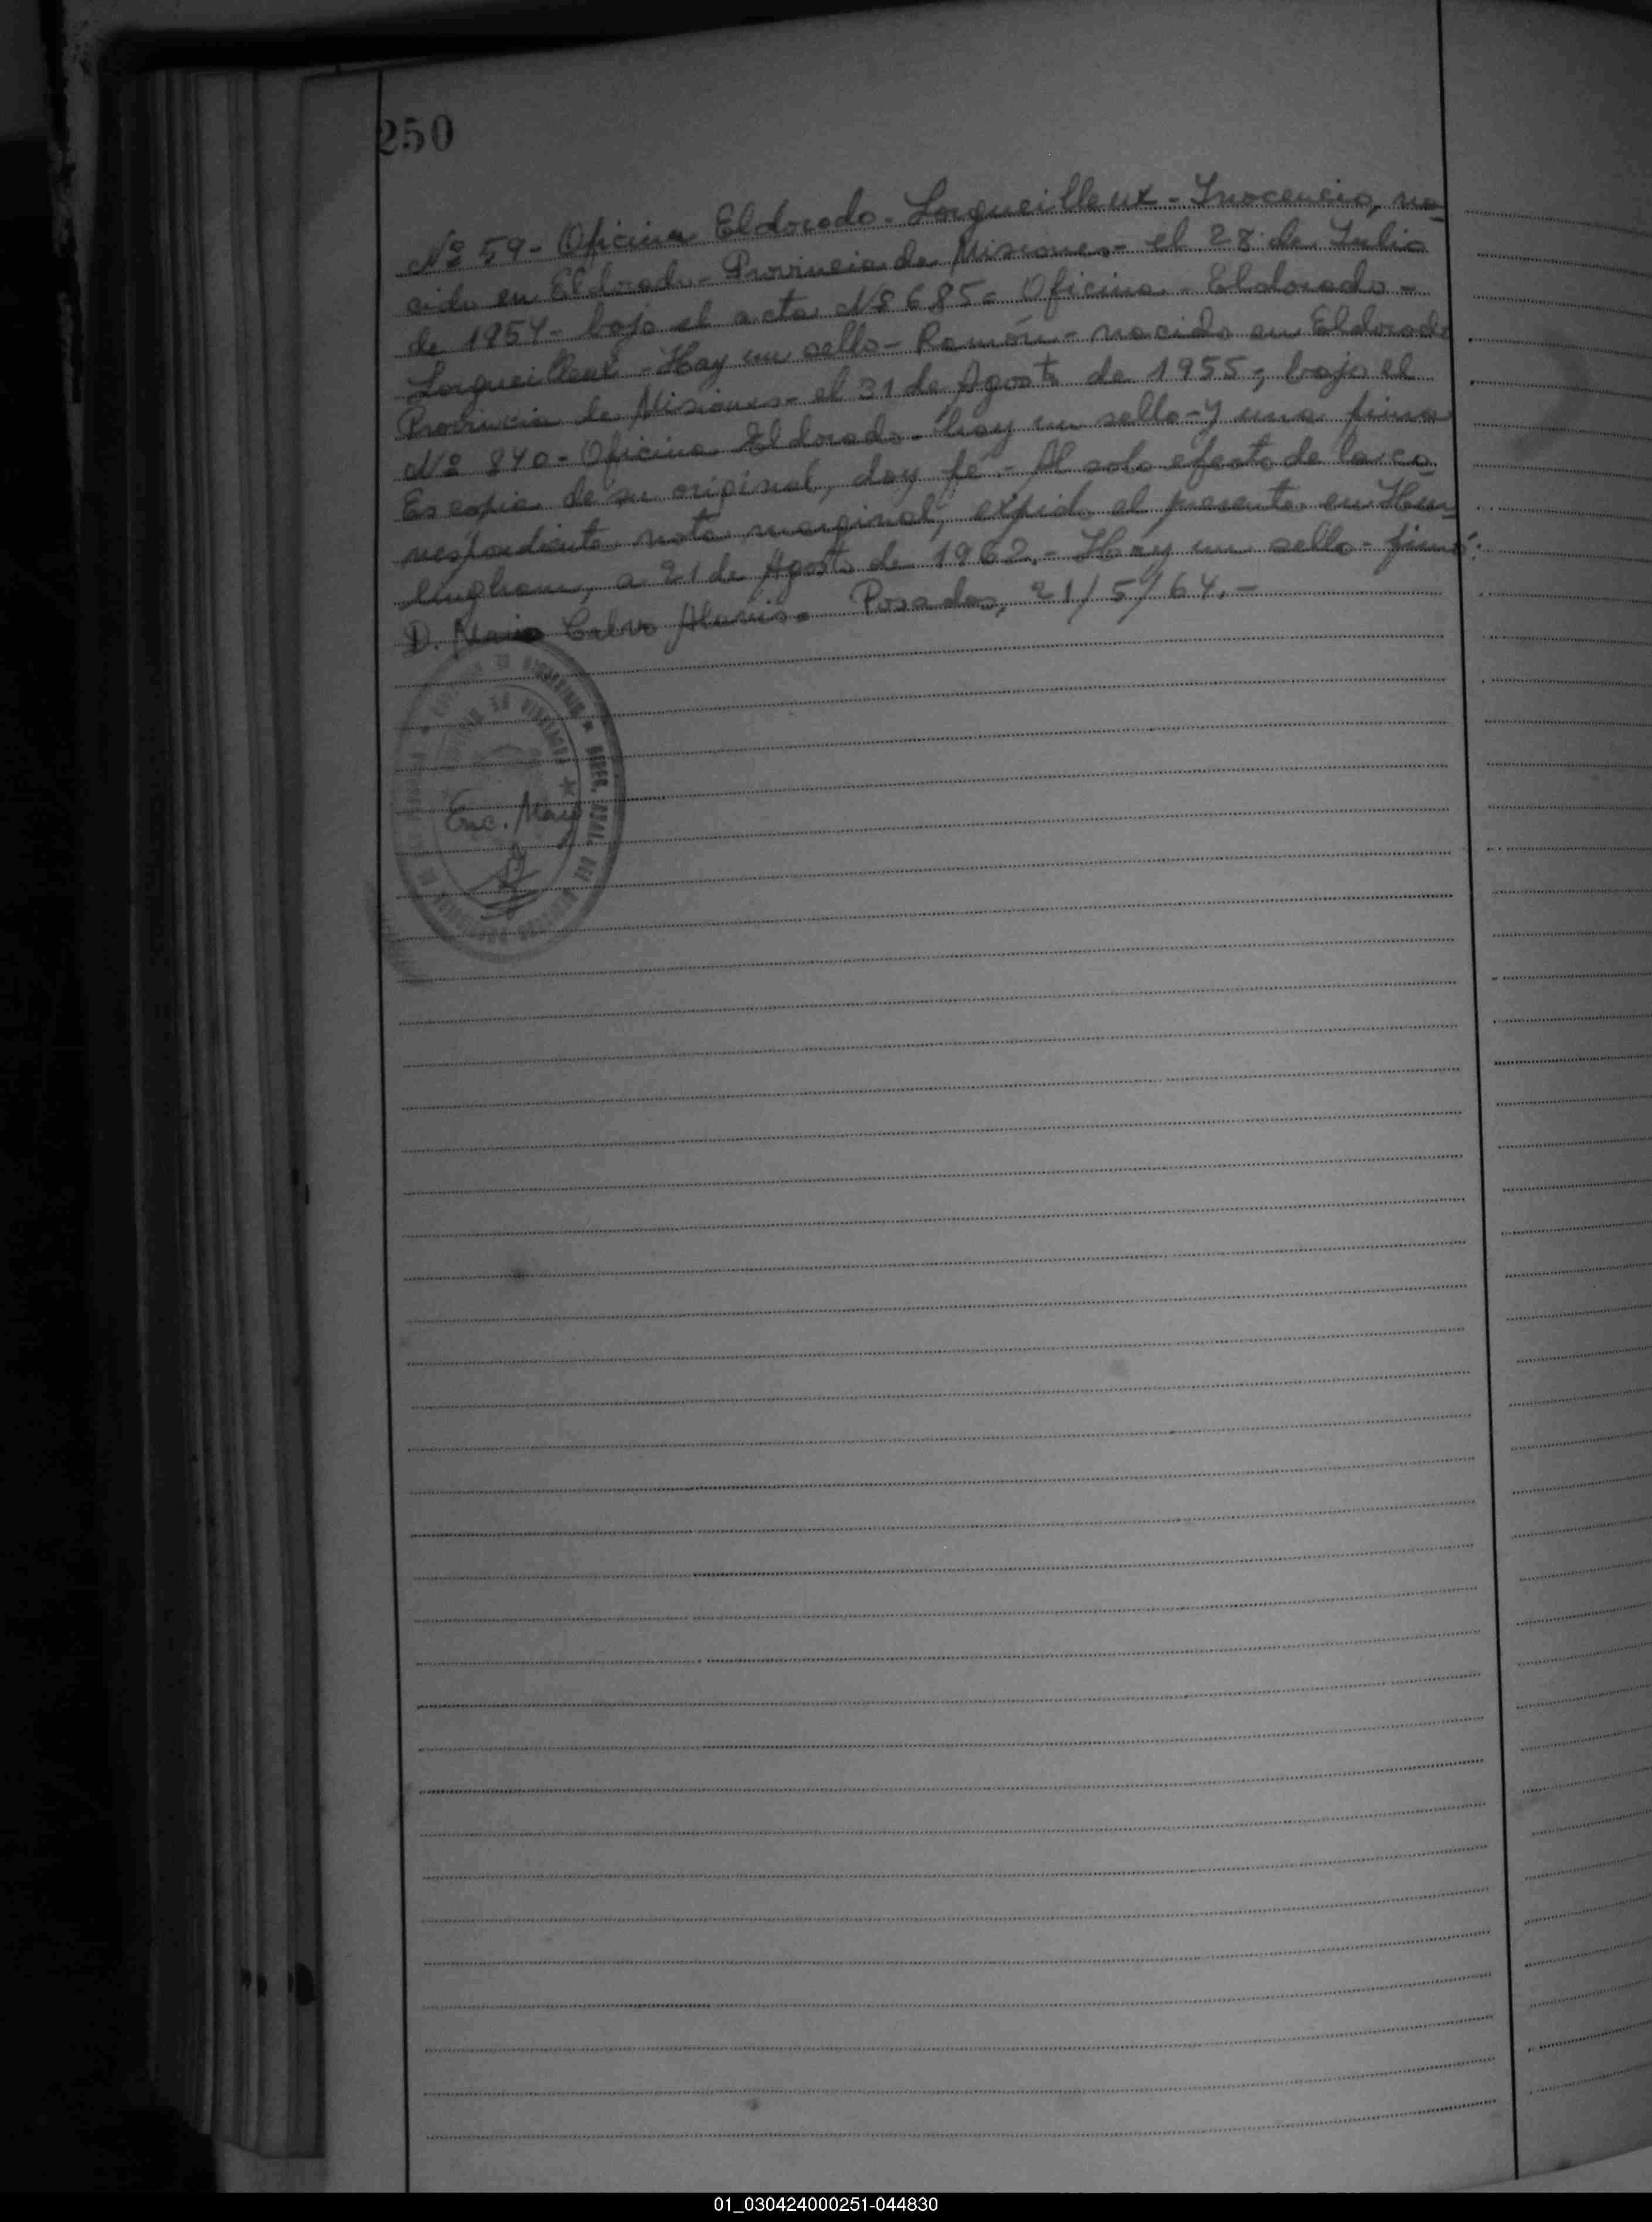 250
Nº 59- Oficina Eldorado- Lorgueilleux- Inocencio, na-
cido en Eldorado- Provincia de Misiones- el 28 de Julio
de 1954- bajo el acta Nº 685- Oficina- Eldorado-
Lorgueilleux- Hay un sello- Ramón- nacido en Eldorado
Provincia de Misiones- el 31 de Agosto de 1955-, bajo el
Nº 840- Oficina Eldorado- hay un sello- y una firma
Es copia de su original, doy fé.- Al solo efecto de la co-
rrespondiente nota marginal, expido el presente en Hur-
lingham, a 21 de Agosto de 1962.- Hay un sello- firmó:
D. Calvo Posadas, 21/5/64.-
PROVINCIA DE
Enc. May